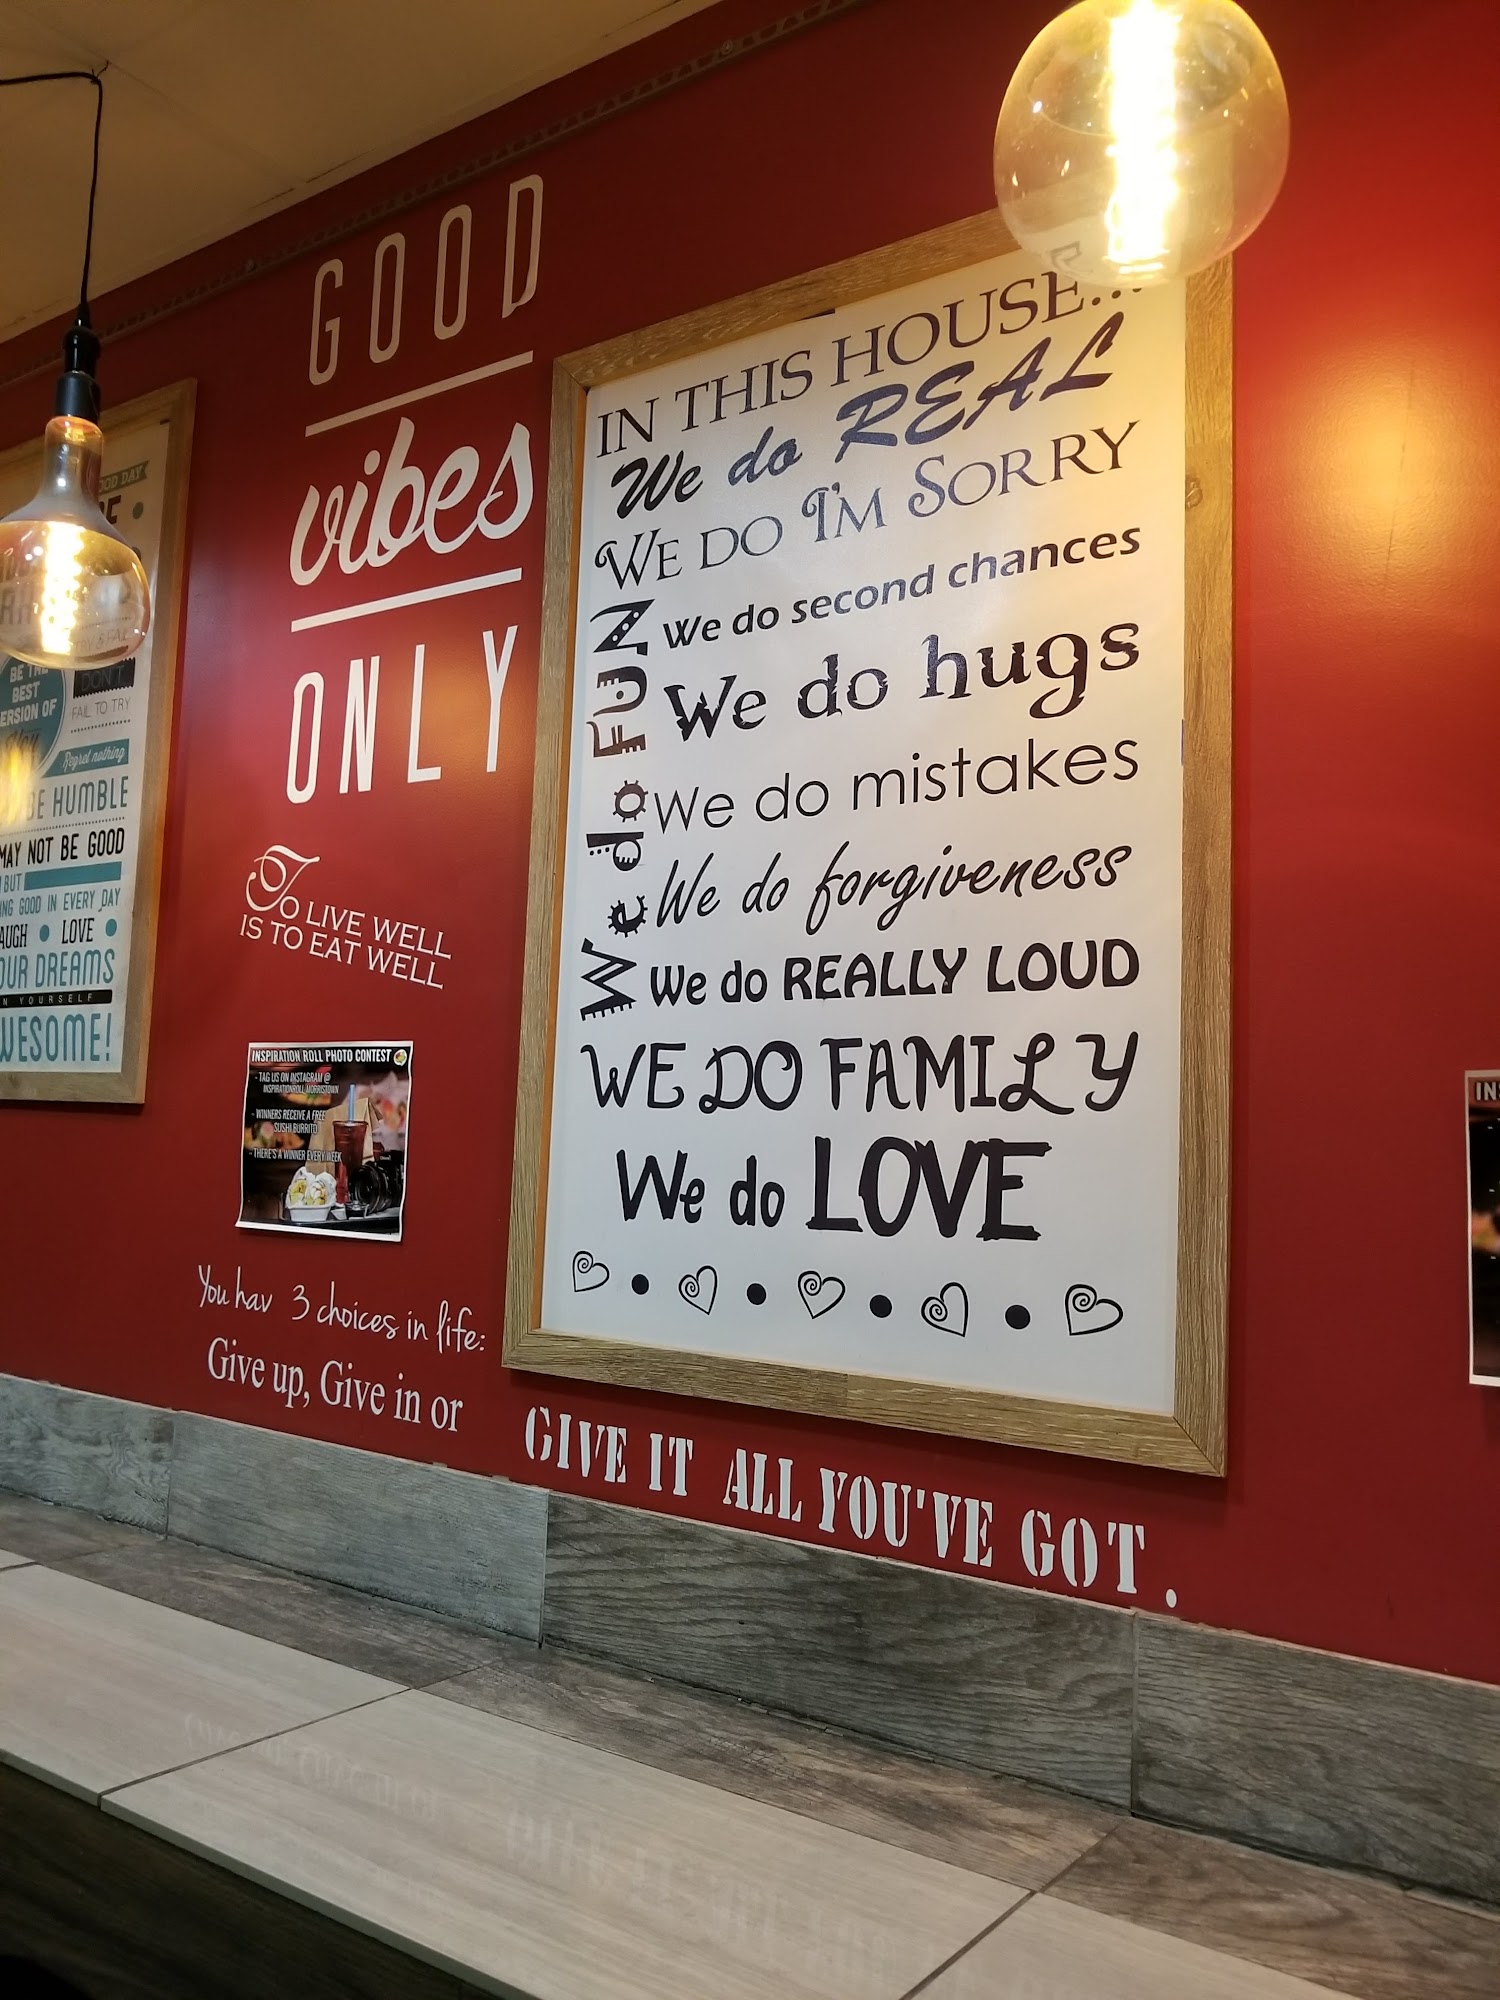 GOOD
vibes
ONLY
To LIVE WELL
IS TO EAT WELL
INSPIRATION ROLL PHOTO CONTEST
- TAG US ON INSTAGRAM @
INSPIRATIONROLL.MORRISTOWN
- WINNERS RECEIVE A FREE
SUSHI BURRITO
- THERE'S A WINNER EVERY WEEK
You hav 3 choices in life:
Give up, Give in or
GIVE IT ALL YOU'VE GOT.
IN THIS HOUSE...
We do REAL
WE DO I'M SORRY
We do second chances
We do hugs
We do mistakes
We do forgiveness
We do REALLY LOUD
We do FUN
WE DO FAMILY
We do LOVE
OOD DAY
BE THE
BEST
ERSION OF
DON'T
FAIL TO TRY
Regret nothing
BE HUMBLE
MAY NOT BE GOOD
BUT
ING GOOD IN EVERY DAY
AUGH • LOVE •
OUR DREAMS
N YOURSELF
WESOME!
IN